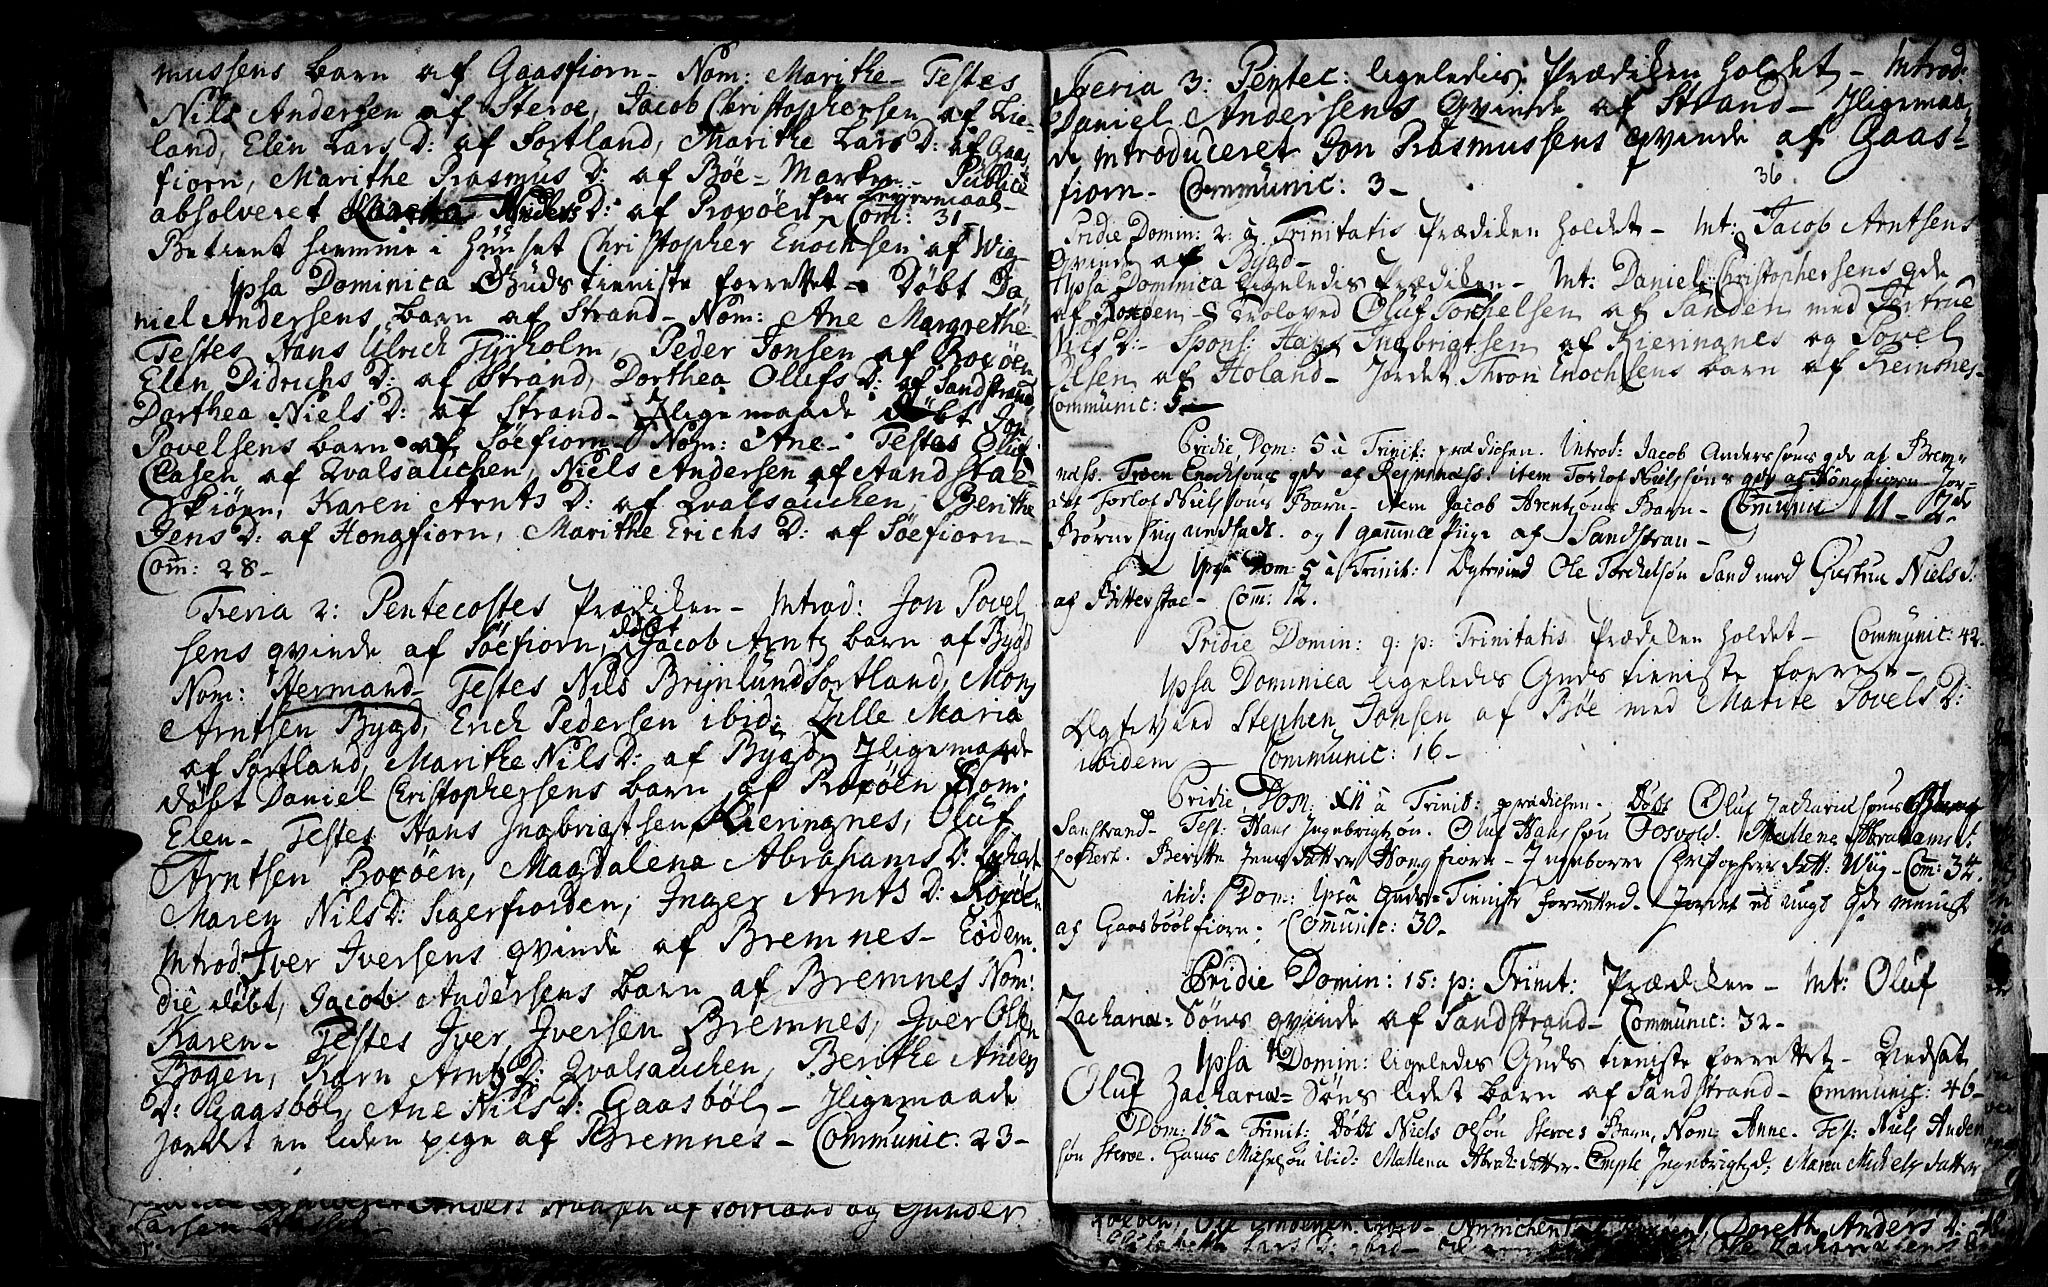 mussens barn af Gaasfiorn - Nom: Marithe - Testes
Nils Andersen af Steroe, Jacob Christophersen af Lie-
land, Elen Lars D: af Sortland, Marithe Lars D: af Gaas
fiorn, Marithe Rasmus D: af Böe - Marken - Publice
absolveret Anders D: af Roxöen for Leyermaal - Com: 31
Betient hiemme i Huuset Christopher Enochsen af Wig
Ipsa Dominica Guds tieniste forrettet - Döbt Da
niel Andersens barn af Strand - Nom: Ane Margrethe -
Testes Hans Ulrich Fyrholm, Peder Jonsen af Roxöen
Elen Didrichs D: af Strand, Dorthea Olufs D: af Sandstrand
Dorthea Niels D: af Strand - Iligemaade döbt Jon
Povelsens barn af Söefiorn - Nom: Ane - Testes Oluf
Clasen af Qvalsauchen, Niels Andersen af Aand stad
Skiörn, Karen Arnts D: af Qvalsauchen, Berithe
Jens D: af Hongfiorn, Marithe Erichs D: af Söefiorn -
Com: 28 -
Feria 2: Pentecostes Prædiken - Introd: Jon Povel
sens qvinde af Söefiorn, döbt Jacob Arntz barn af Bygd
Nom: Hermand - Testes Nils Brynlund Sortland, Mons
Arntsen Bygd, Erich Pedersen ibid: Zille Maria
af Sortland, Marithe Nils D: af Bygd, Iligemaade
döbt Daniel Christophersens barn af Roxöen Nom:
Elen - Testes Hans Ingbrigtsen Kieringnes, Oluf
Arntsen Roxöen, Magdalena Abrahams D:
Maren Nils D: Sigerfiorden, Inger Arnts D: Roxöen
Introd: Iver Iversens qvinde af Bremnes - Eodem
die döbt, Jacob Andersens barn af Bremnes Nom:
Karen - Testes Iver Iversen Bremnes, Iver Olsen
Bogen, Karn Arnts D: Qvalsauchen, Berithe Anders
D: Gaasböl, Ane Nils D: Gaasböl - Iligemaade
jordet en liden pige af Bremnes - Communic: 23 -
Anders af Sortland og Gunder
Larsen
Feria 3: Pentec: ligeledis Prædiken holdet - Introd:
Daniel Andersens Qvinde af Strand - Iligemaa
de introduceret Jon Rasmussens qvinde af Gaas-
fiorn - Communic: 3 -
36
Pridie Domin: 2: à Trinitatis Prædiken holdet - Int: Jacob Arntsens
Qvinde af Bygd -
Ipsa Dominica ligeledis Prædiken - Int: Daniel Christophersens qde
af Roxöen - Troloved Oluf Torchelsen af Sanden med Giertrue
Nils D: - Spons: Hans Ingbrigtsen af Kieringnes og Povel
Olsen af Holand - Jordet Thron Enochsens barn af Remnes -
Communic: 5 -
Pridie Dom: 5 à Trinit: prædichen. Introd: Jacob Anderssöns qde af Brem-
næss. Troen Enochsöns qde af Reinnæss. item Torlof Nielssöns qde af Höngfiorn - Jor-
det Torlof Nielssöns Barn - item Jacob Arentsöns Barn - Communic 11 - 2de
Börns lig nedsadt. og 1 gammel Pige af Sandstran -
Ipsa Dom 5 à Trinit: Egteviid Ole Torchelsön Sand med Giertrue Niels D:
af Bitterstae - Com: 12.
Pridie Domin: 9: p: Trinitatis Prædiken holdet - Communic: 42.
Ipsa Dominica ligeledis Guds tieniste forrett -
Ægtevied Stephen Jonsen af Böe med Marite Povels D:
ibidem - Communic: 16 -
Pridie Dom: XII à Trinit: prædichen - Döbt Oluf Zachariæsöns
Sanstrand - Test: Hans Ingebrigtsön. Oluf Hanssön Mallene Abrahams d:
Berith Jensdatter Höngfiorn - Ingeborre Christophersdatt: Wiig - Com: 34.
ibid: Dom: Ipsa Guds-Tieniste forretted - Jordet et ungt qde menniske
af Gaasböölfiorn. Communic: 30 -
Pridie Domin: 15: p: Trinit: Prædiken - Int: Oluf
Zachariæ-Söns qvinde af Sandstrand - Communic: 32 -
Ipsa Domin: ligeledis Guds tieniste forrettet - Nedsat
Oluf Zachariæ-Söns lidet barn af Sandstrand - Communic: 46 -
Dom: 15 - Trinit: Döbt Niels Olsön Steroes Barn, Nom: Anne. Test: Niels Ander
sön Steroe. Hans Michelsön ibid: Mallena Abrah: datter - Ingebrigts d: Maren Michels datter
Roxöen, Ole Andersen ibid - Doreth Anders D:
Lars D: ibid - Ole Zachariæsens